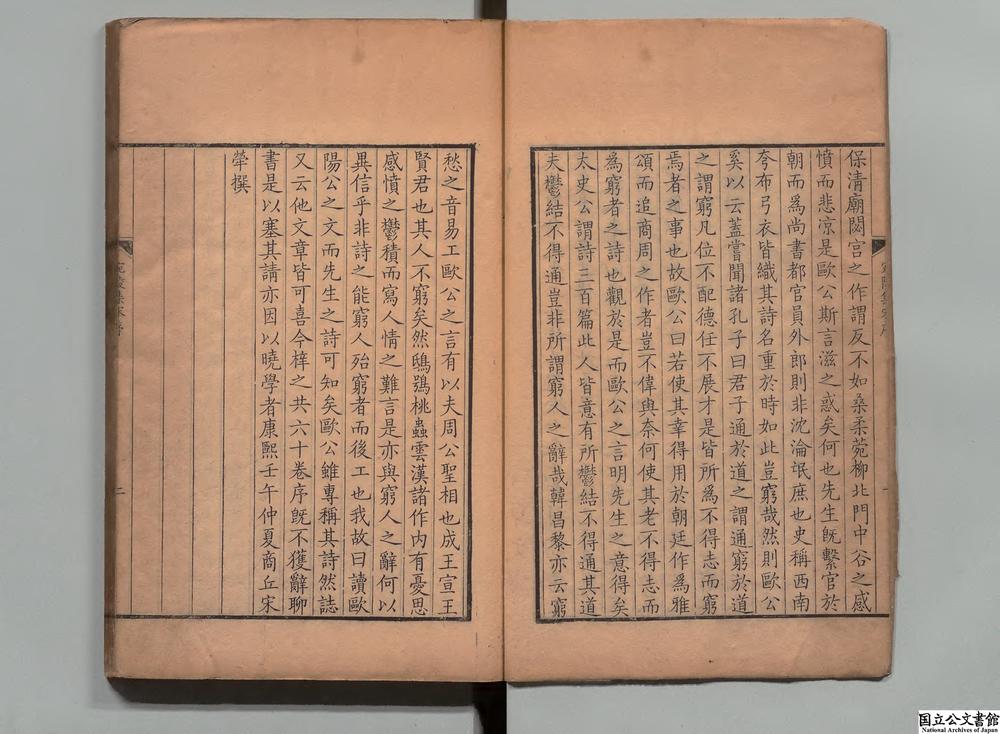 保清廟閟宫之作謂反不如桑柔菀柳北門中谷之感
憤而悲凉是歐公斯言滋之惑矣何也先生旣繫官於
朝而爲尚書都官員外郎則非沈淪氓庶也史稱西南
夸布弓衣皆織其詩名重於時如此豈窮哉然則歐公
奚以云蓋嘗聞諸孔子曰君子通於道之謂通窮於道
之謂窮凡位不配德任不展才是皆所爲不得志而窮
焉者之事也故歐公曰若使其幸得用於朝廷作爲雅
頌而追商周之作者豈不偉與奈何使其老不得志而
爲窮者之詩也觀於是而歐公之言明先生之意得矣
太史公謂詩三百篇此人皆意有所鬱結不得通其道
夫鬱結不得通豈非所謂窮人之辭哉韓昌黎亦云窮
愁之音易工歐公之言有以夫周公聖相也成王宣王
賢君也其人不窮矣然鴟鴞桃蟲雲漢諸作内有憂思
感憤之鬱積而寫人情之難言是亦與窮人之辭何以
異信乎非詩之能窮人殆窮者而後工也我故曰讀歐
陽公之文而先生之詩可知矣歐公雖專稱其詩然誌
又云他文章皆可喜今梓之共六十卷序旣不獲辭聊
書是以塞其請亦因以曉學者康熙壬午仲夏商丘宋
犖撰
二
国立公文書館
National Archives of Japan